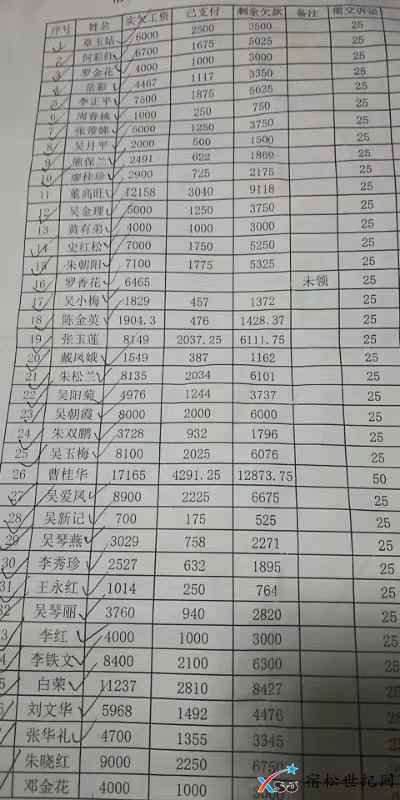 序号 姓名 实欠工资 已支付 剩余欠款 备注 提交诉讼
1 章玉结 6000 2500 3500 25
2 何彩仙 6700 1675 5025 25
3 罗金花 4000 1000 3000 25
4 岳彩 4467 1117 3350 25
5 李正平 7500 1875 5625 25
6 周春桃 1000 250 750 25
7 张蒂娣 5000 1250 3750 25
8 吴月平 2000 500 1500 25
9 熊保兰 2491 622 1869 25
10 廖桂珍 2900 725 2175 25
11 董高旺 12158 3040 9118 25
12 吴金理 5000 1250 3750 25
13 黄有弟 4000 1000 3000 25
14 史红松 7000 1750 5250 25
15 朱朝阳 7100 1775 5325 25
16 罗香花 6465 未领 25
17 吴小梅 1829 457 1372 25
18 陈金英 1904.3 476 1428.37 25
19 张玉莲 8149 2037.25 6111.75 25
20 戴凤娥 1549 387 1162 25
21 朱松兰 8135 2034 6101 25
22 吴阳菊 4976 1244 3737 25
23 吴朝霞 8000 2000 6000 25
24 朱双鹏 3728 932 1796 25
25 吴玉梅 8100 2025 6076 25
26 曹桂华 17165 4291.25 12873.75 50
27 吴爱凤 8900 2225 6675 25
28 吴新记 700 175 525 25
29 吴琴燕 3029 758 2271 25
30 李秀珍 2527 632 1895 25
31 王永红 1014 250 764 25
32 吴琴丽 3760 940 2820 25
3 李红 4000 1000 3000 25
4 李铁文 8400 2100 6300 25
5 白荣 11237 2810 8427 25
刘文华 5968 1492 4476 25
张华礼 4700 1355 3345 25
朱晓红 9000 2250 6750
邓金花 4000 1000
宿松世纪网